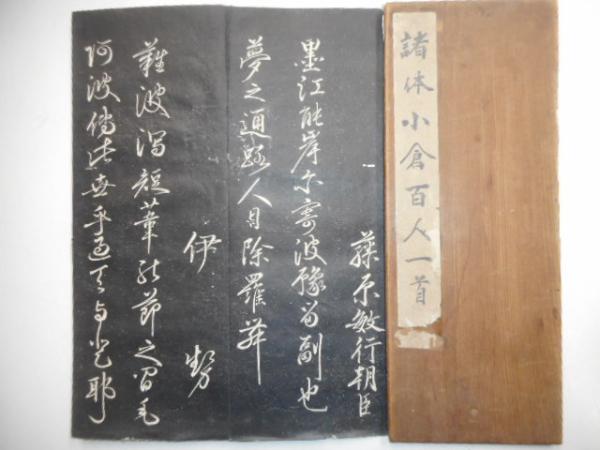 諸体小倉百人一首
藤原敏行朝臣
墨江能岸尓寄波豫留副也
夢之通路人目除羅舞
伊勢
難波潟短葦能節之間毛
阿波傳此世乎過天与登耶